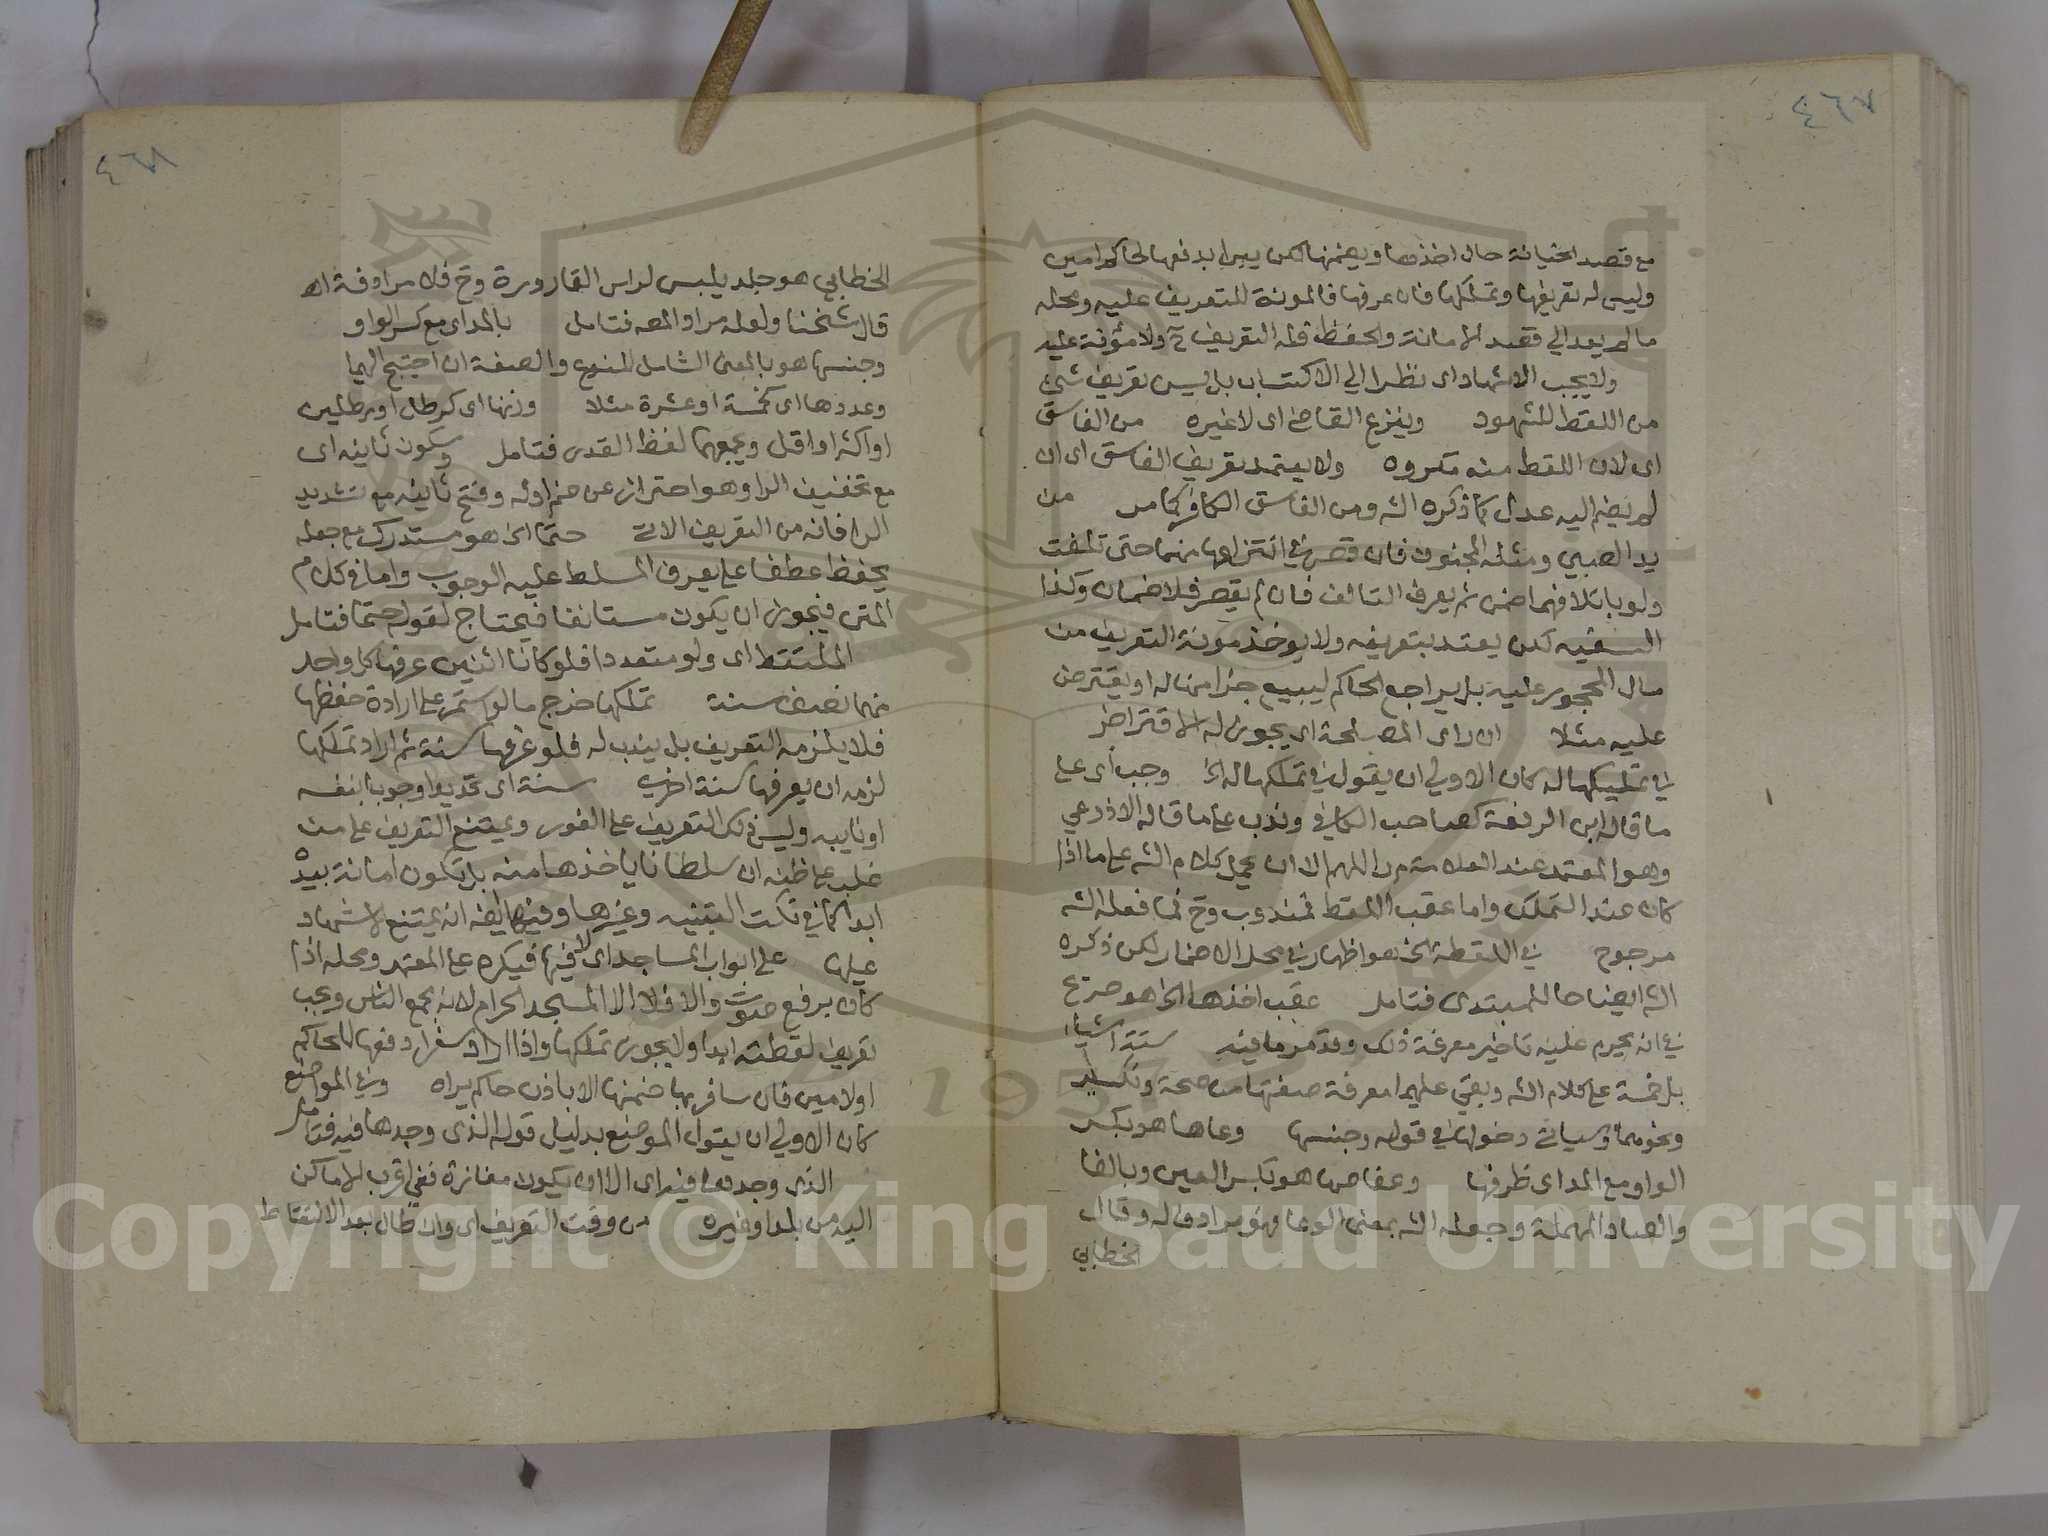 ٤٦٧
مع قصد الخيانة حال اخذها ويضمنها لكن يبرا بدفعها لحاكم امين
وليس له تعريفها وتملكها فان عرفها فالمونة للتعريف عليه ومحله
ما لم يعد الي قصد الامانة والحفظ فله التعريف ح ولا مؤنة عليه
ولا يجب الاشهاد اى نظرا الي الاكتساب بل يسن تعريف شئ
من اللقط للشهود وينزع القاضي اى لا غيره من الفاسق
اى لان اللقط منه مكروه ولا يعتمد تعريف الفاسق اى ان
لم يضم اليه عدل كما ذكره الشه ومن الفاسق الكافر كما مر من
يد الصبي ومثله المجنون فان قصر في انتزاعها منهما حتى تلفت
ولو باتلافهما ضمن ثم يعرف التالف فان لم يقصر فلا ضمان وكذا
السفيه لكن يعتد بتعريفه ولا يوخذ مونة التعريف من
مال المحجور عليه بل يراجع الحاكم ليبيع جزا من ماله او يقترض
عليه مثلا ان راى المصلحة اى يجوز له الاقتراض
في تمليكها له كان الاولي ان يقول في تملكها له الخ وجب اى على
ما قاله ابن الرفعة كصاحب الكافي وندب على ما قاله الاذرعي
وهو المعتمد عند العلامة م ر اللهم الا ان يحمل كلام الشه على ما اذا
كان عند التملك واما عقب اللقط فمندوب وح فما فعله الشه
مرجوح في اللقطة الخ هو اظهار في محل الاضمار لكن ذكره
الشه ايضاحا للمبتدى فتامل عقب اخذها الخ هو صريح
في انه يحرم عليه تاخير معرفة ذلك وقد مر ما فيه ستة اشياء
بل خمسة على كلام الشه وبقي عليهما معرفة صفتها من صحة وتكسير
ونحوهما وسياتي دخولها في قوله وجنسها وعاها هو بكسر
الواو مع المد اى ظرفها وعفاصها هو بكسر العين وبالفا
والصاد المهملة وجعله الشه بمعنى الوعا فهو مرادف له وقال
الخطابي
٤٦٨
الخطابي هو جلد يلبس لراس القارورة وح فلا مرادفة اه
قال شيخنا ولعله مراد المصه فتامل بالمد اى مع كسر الواو
وجنسها هو بالمعنى الشامل للنوع والصفة ان احتيج اليهما
وعددها اى كخمسة او عشرة مثلا وزنها اى كرطل او رطلين
او اكثر او اقل ويجمعهما لفظ القدر فتامل وسكون ثانيه اى
مع تخفيف الرا وهو احتراز عن ضم اوله وفتح ثانيه مع تشديد
الرا فانه من التعريف الاتي حتما الخ هو مستدرك مع جعله
يحفظ عطفا على يعرف المسلط عليه الوجوب واما في كلام
المتن فيجوز ان يكون مستانفا فيحتاج لقوله حتما فتامل
الملتقط اى ولو متعددا فلو كانا اثنين عرفها كل واحد
منهما نصف سنة تملكها خرج ما لو استمر على ارادة حفظها
فلا يلزمه التعريف بل يندب له فلو عرفها سنة ثم اراد تملكها
لزمه ان يعرفها سنة اخرى سنة اى تحديدا وجوبا بنفسه
او نايبه وليس ذلك التعريف على الفور ويمتنع التعريف على من
غلب على ظنه ان سلطانا ياخذها منه بل تكون امانة بيده
ابدا كما في نكت التنبيه وغيرها وفيها ايضه انه يمتنع الاشهاد
عليها على ابواب المساجد اى لا فيها فيكره على المعتمد ومحله اذا
كان برفع صوت والا فلا الا المسجد الحرام لانه يجمع الناس ويجب
تعريف لقطته ابدا ولا يجوز تملكها واذا اراد سفرا دفعها للحاكم
او لامين فان سافر بها ضمنها الا باذن حاكم يراه وفي المواضع
كان الاولي ان يقول الموضع بدليل قوله الذى وجدها فيه فتامل
الذى وجدها فيه اى الا ان يكون مفازة ففي اقرب الاماكن
اليه من بلد او غيره من وقت التعريف اى وان طال بعد الالتقاط
Copyright © King Saud University
1957